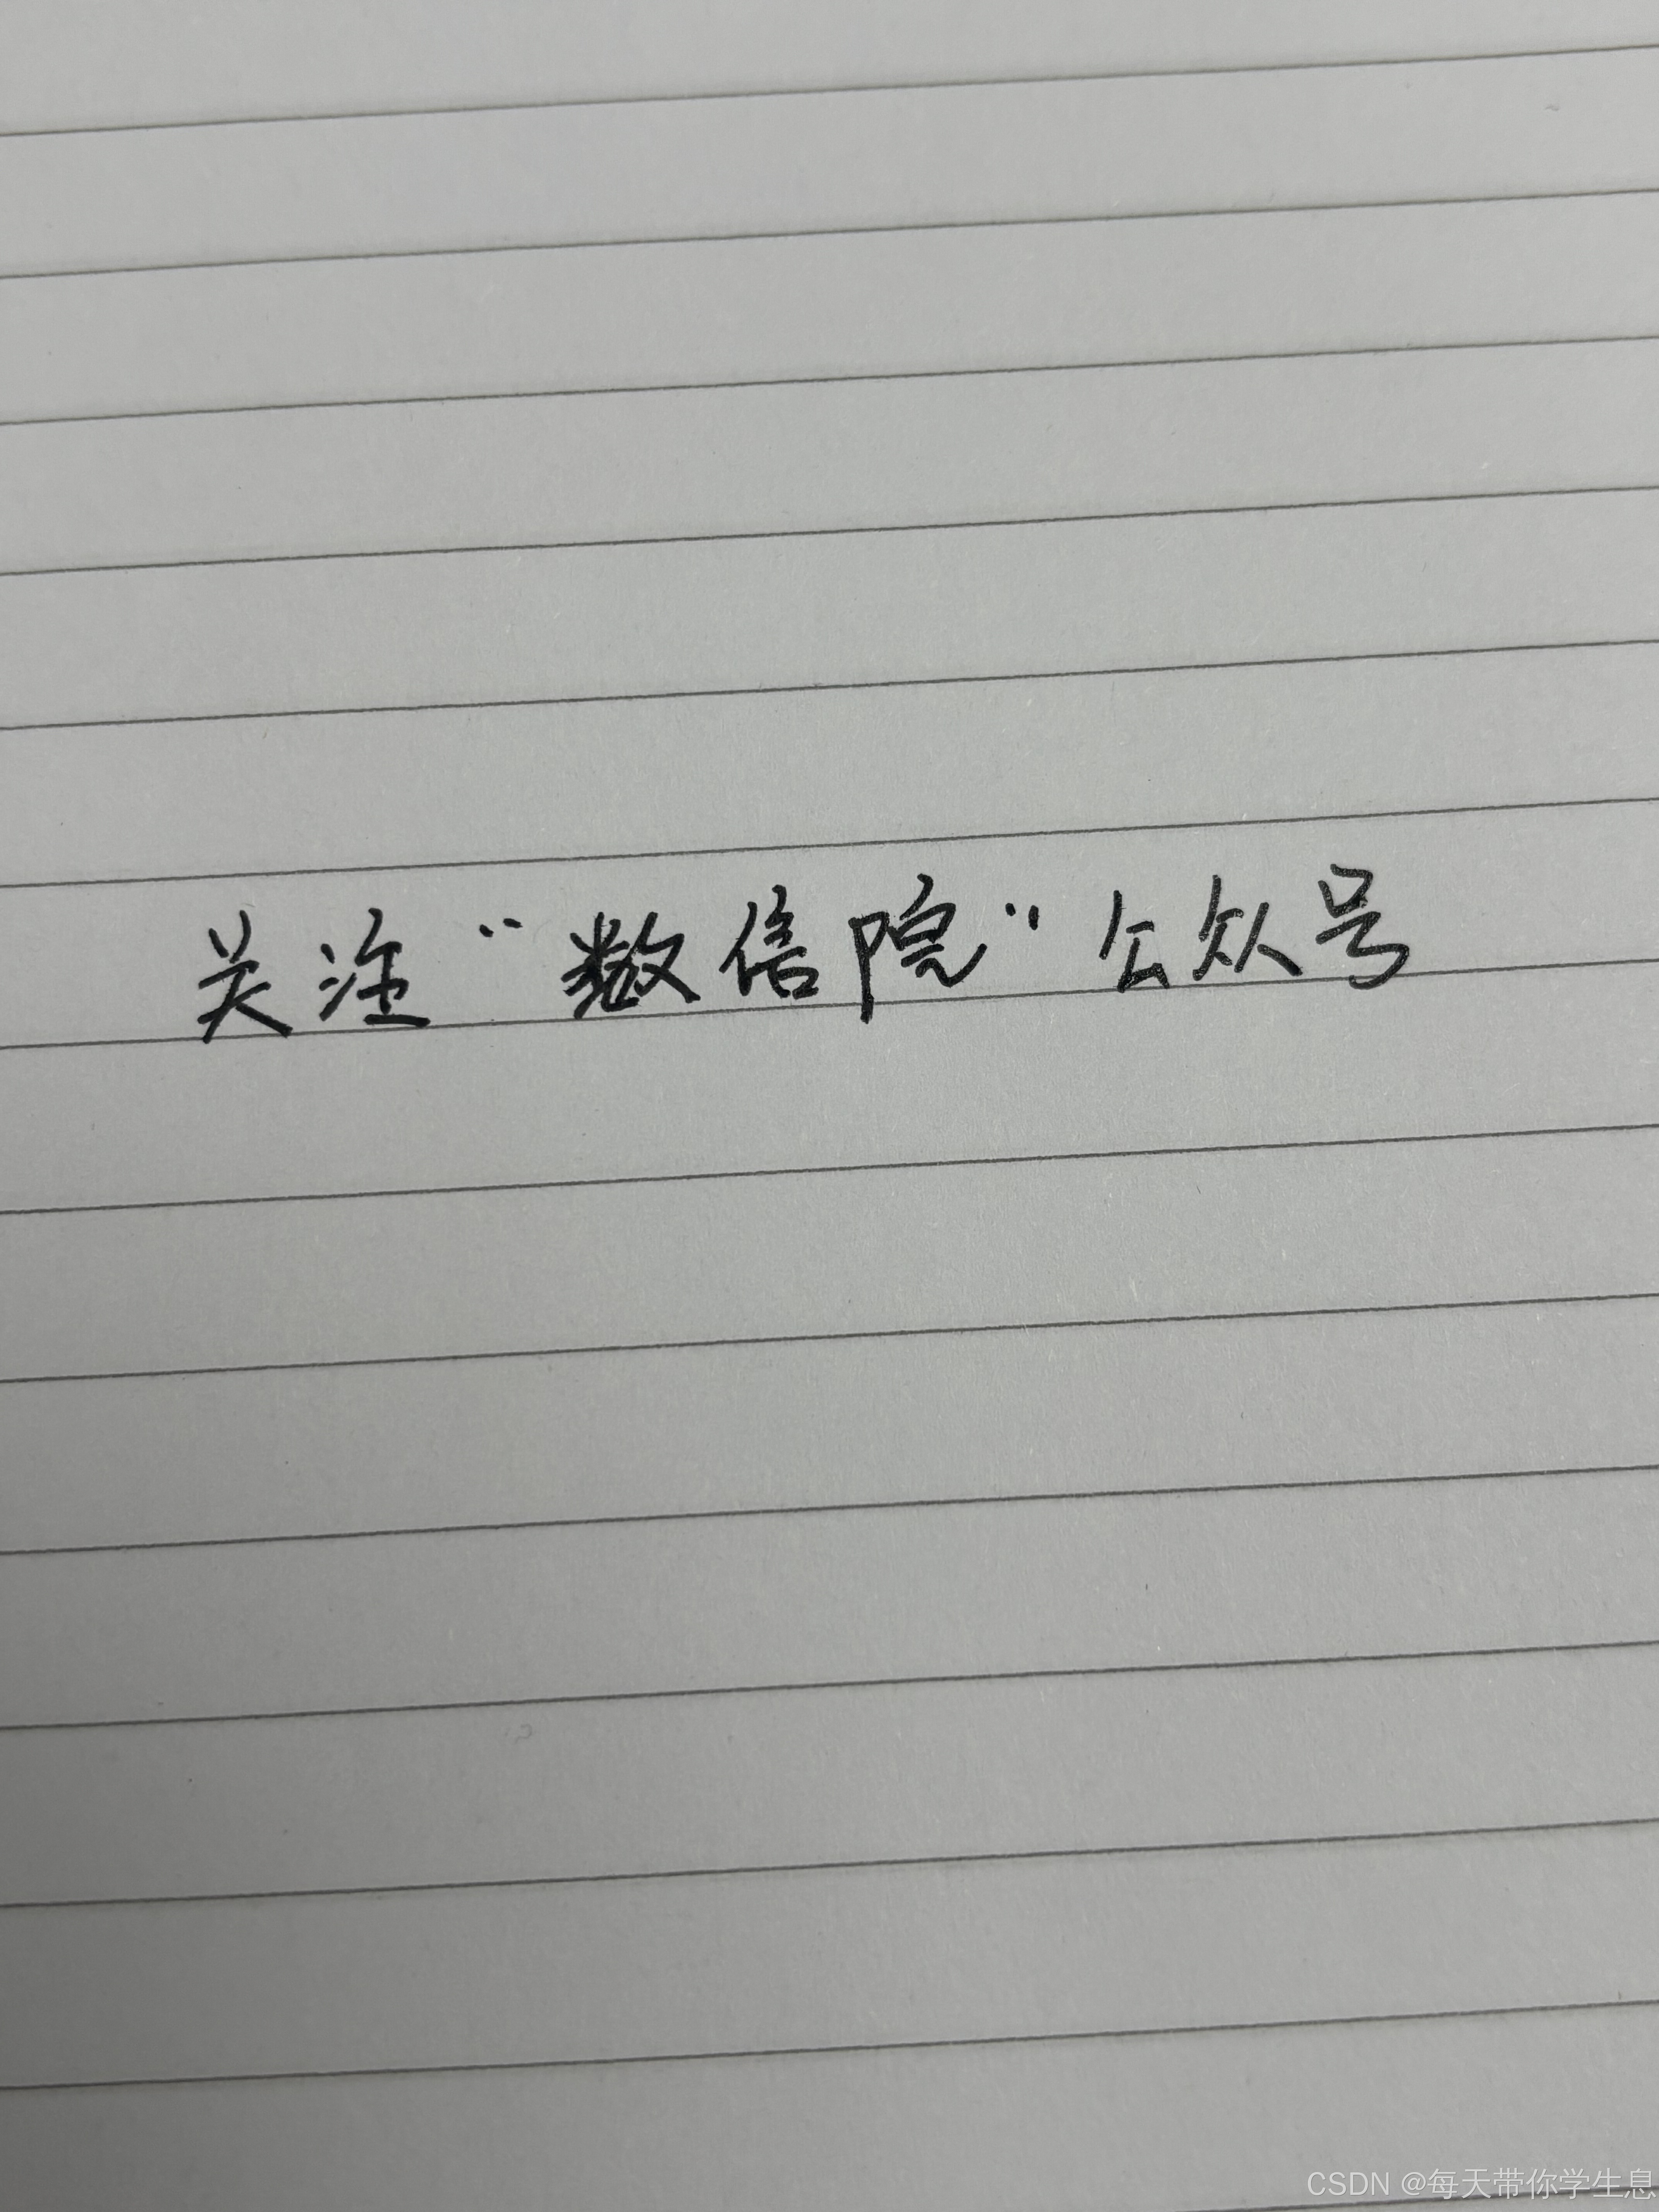 关注“数信院”公众号
CSDN @每天带你学生息